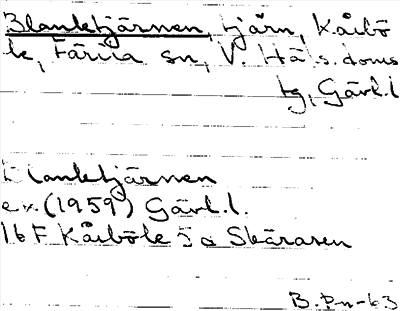 Blanktjärnen, tjärn, Kårbö
le, Färila sn, V. Häls. doms
tg, Gävl.l
Blanktjärnen
ek.(1959) Gävl.l.
16F Kårböle 5a Skärasen
B.Pn-63